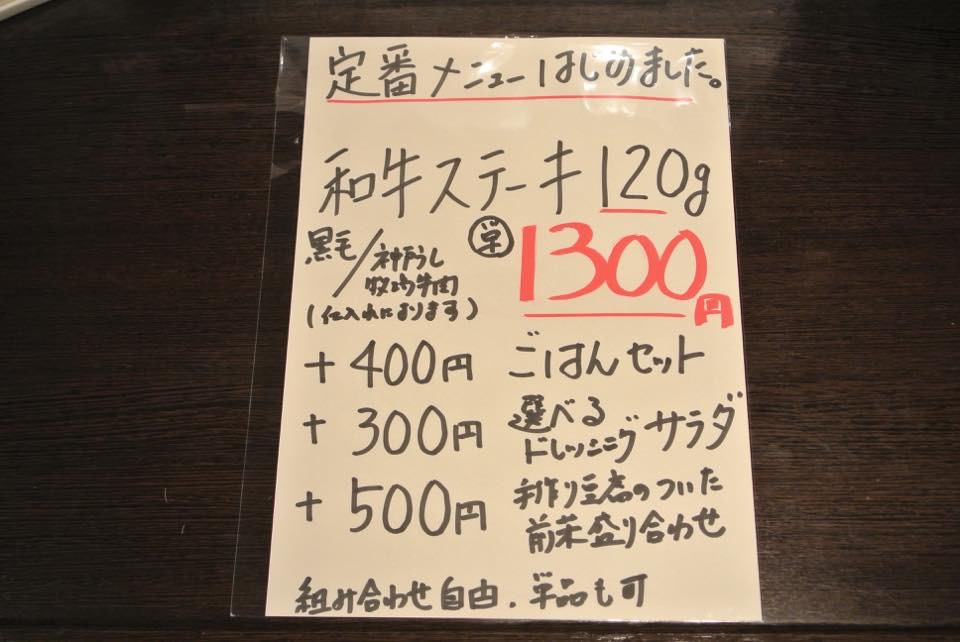 定番メニューはじめました。
和牛ステーキ120g
単 1300円
黒毛/神戸うし
牧場牛肉
(仕入れによります)
+400円 ごはんセット
+300円 選べる
ドレッシングサラダ
+500円 手作り豆腐のついた
前菜盛り合わせ
組み合わせ自由、単品も可